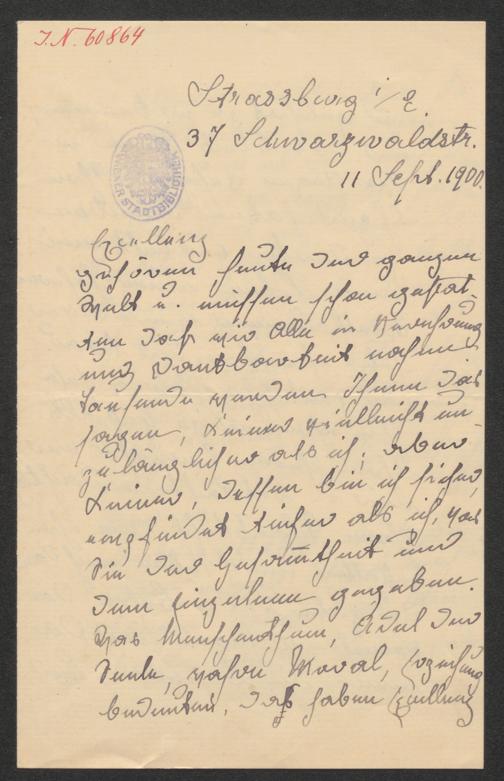 I.N. 60864
Strassburg i/E
37 Schwarzwaldstr.
11 Sept. 1900.
WIENER STADTBIBLIOTHEK
Excellenz
gehören heute der ganzen
Welt u. müssen schon gestat-
ten daß wir Alle in Verehrung
und Dankbarkeit nahen.
Tausende werden Ihnen das
sagen, Keiner vielleicht un-
zulänglicher als ich, aber
Keiner, dessen bin ich sicher,
empfindet tiefer als ich, was
Sie der Gesammtheit und
dem Einzelnen gegeben.
Was Menschenthum, Adel der
Seele, wahre Moral, Erziehung
bedeuten, das haben Excellenz